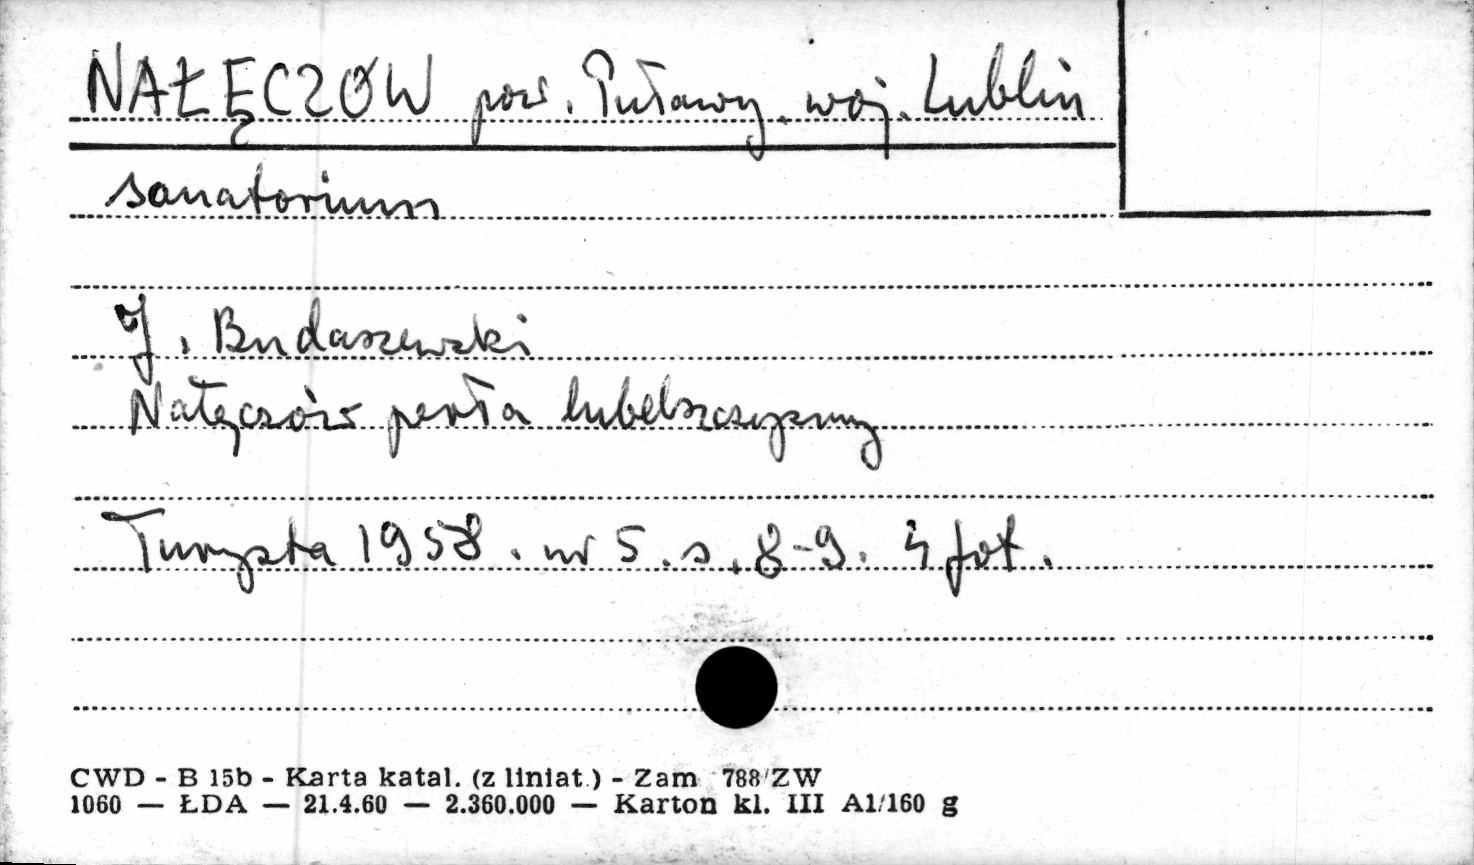 NAŁĘCZÓW pow. Puławy. woj. Lublin
sanatorium
J. Budaszewski
Nałęczów perła lubelszczyzny
Turysta 1958. nr 5. s. 8-9. 4 fot.
CWD - B 15b - Karta katal. (z liniat.) - Zam 788/ZW
1060 — ŁDA — 21.4.60 — 2.360.000 — Karton kl. III A1/160 g